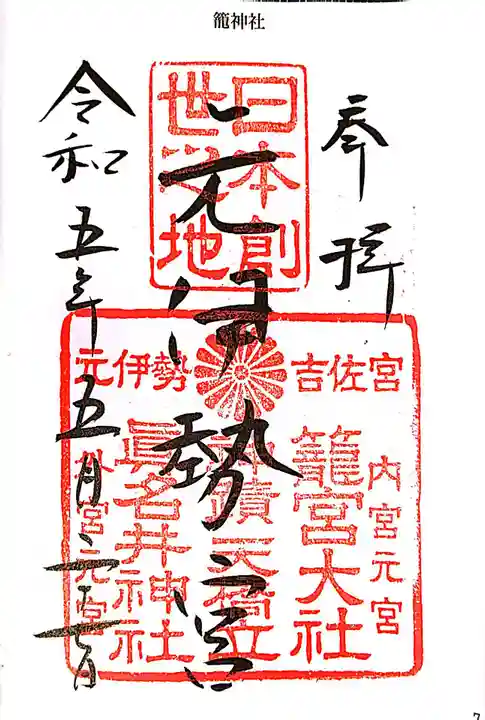 籠神社
奉拝
元伊勢
宮
令和五年五月
日本創
世
地
元伊勢 吉佐宮
内宮元宮
籠宮大社
神蹟天橋立
眞名井神社
外宮元宮
7